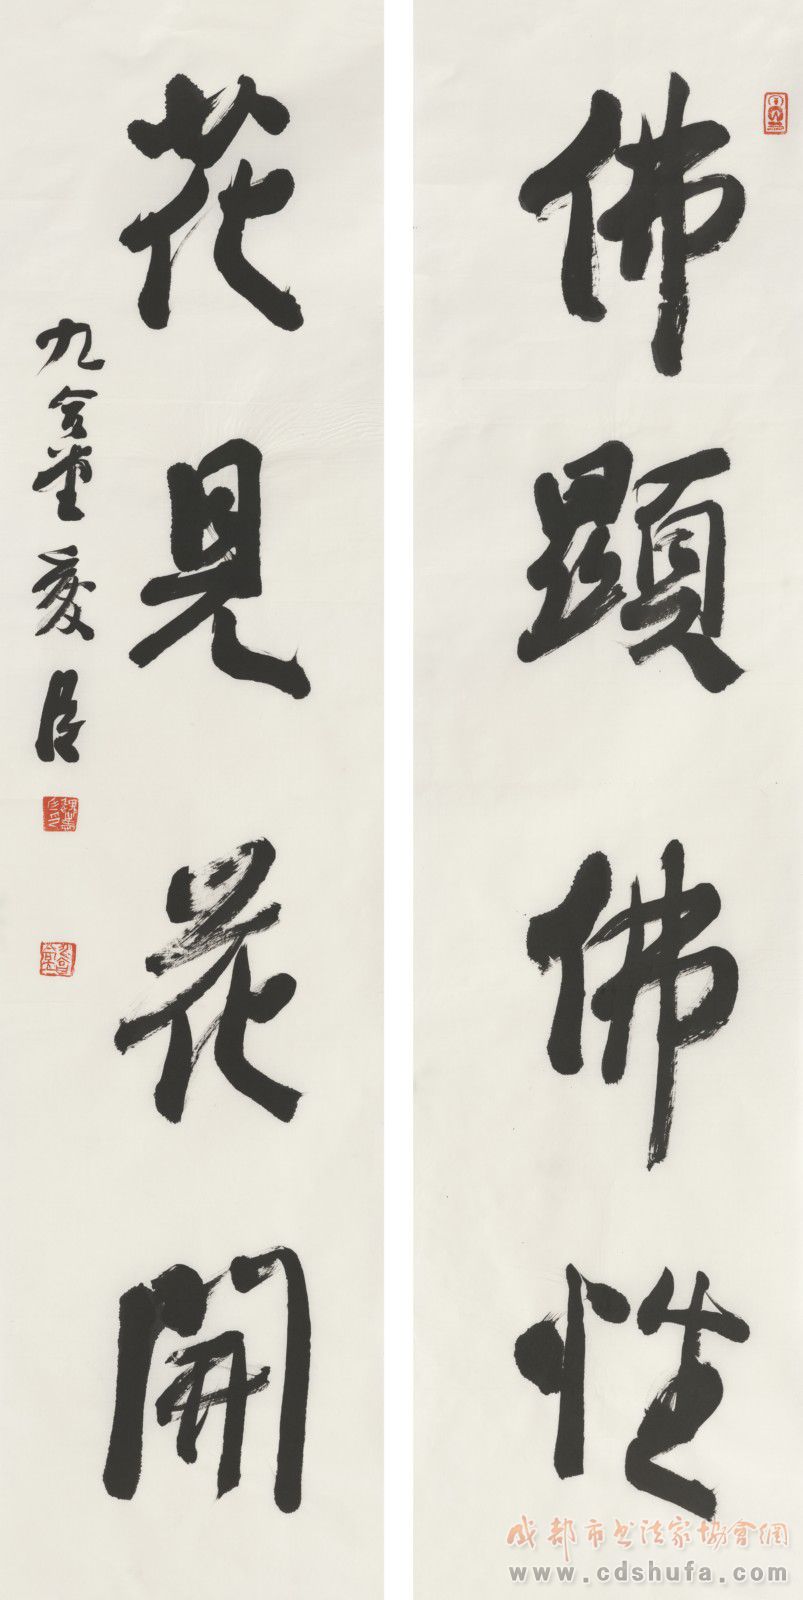 佛顯佛性
花見花開
九合堂
成都市书法家协會網
www.cdshufa.com